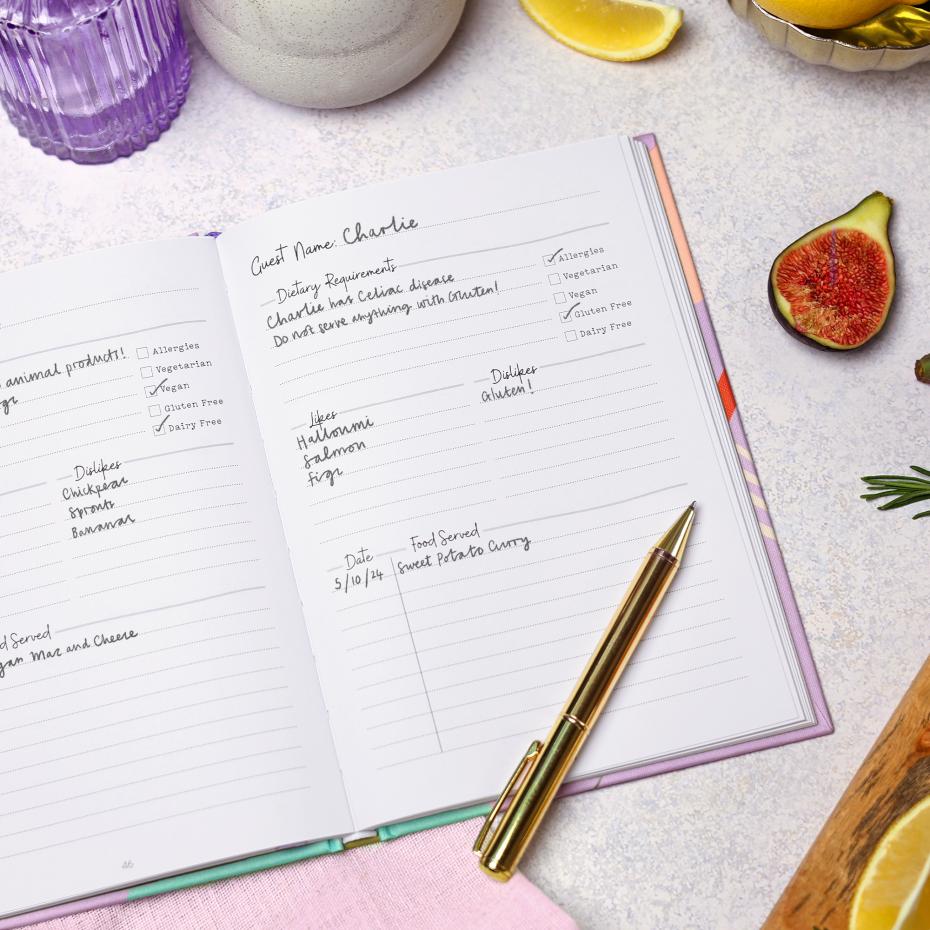 animal products!
Allergies
Vegetarian
Vegan
Gluten Free
Dairy Free
Dislikes
Chickpeas
Sprouts
Bananas
Served
Mac and Cheese
46
Guest Name: Charlie
Dietary Requirements
Charlie has Celiac disease
Do not serve anything with Gluten!
Allergies
Vegetarian
Vegan
Gluten Free
Dairy Free
Likes
Halloumi
Salmon
Figs
Dislikes
Gluten!
Date Food Served
5/10/24 Sweet Potato Curry